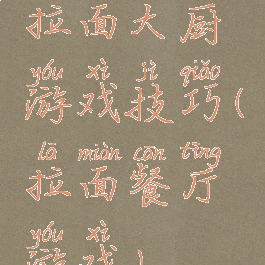 拉面大厨
yóu xì jì qiǎo
游戏技巧(
lā miàn cān tīng
拉面餐厅
yóu xì
游戏)